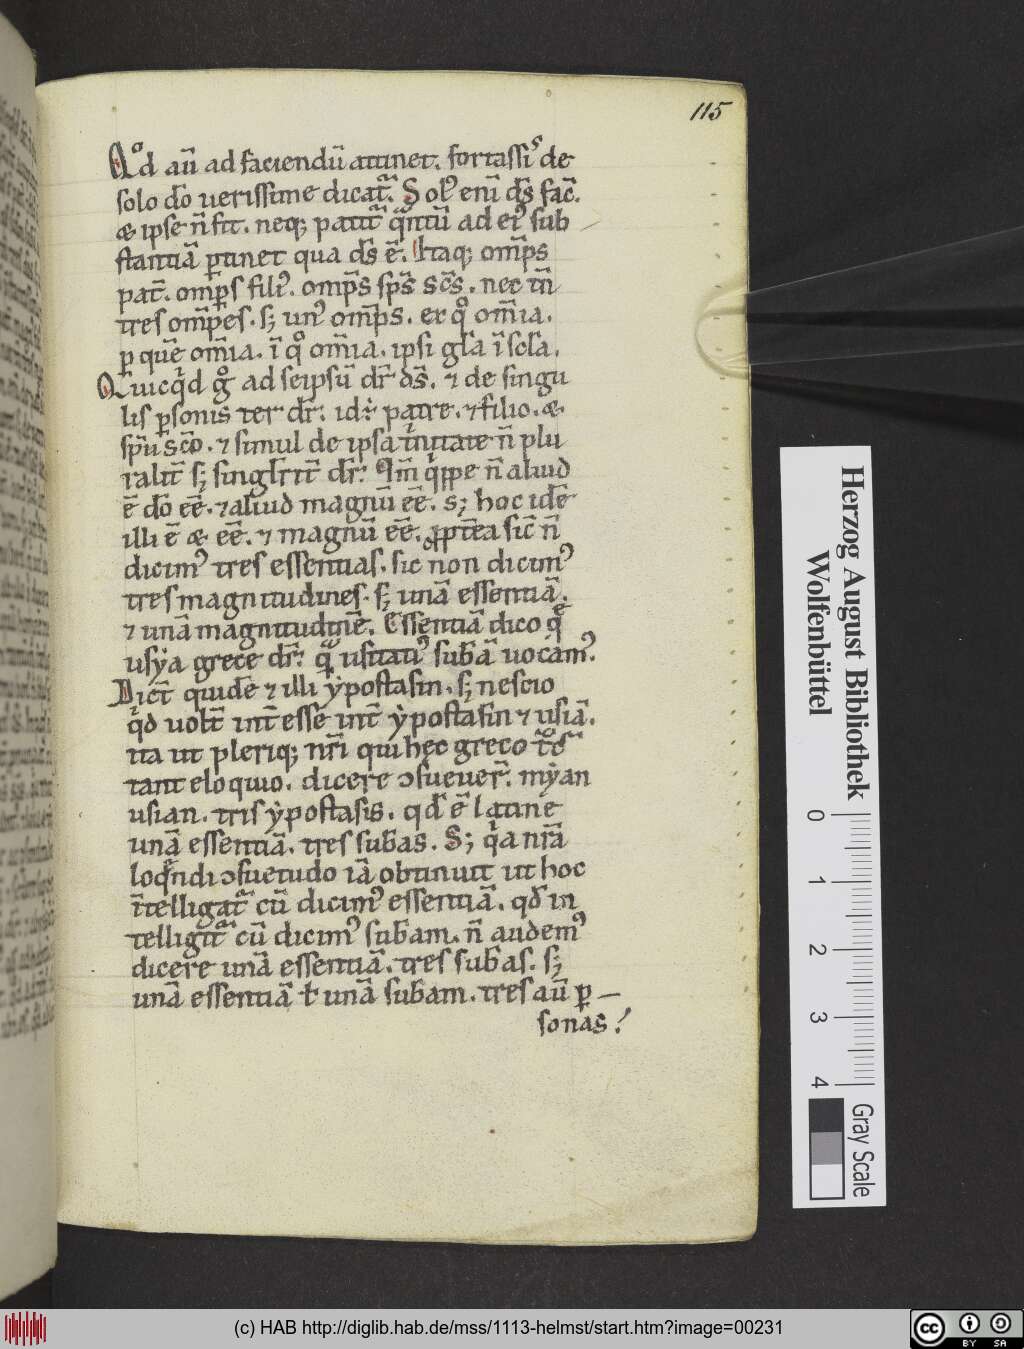 115
Qͦd aū ad faciendū attinet. fortassi᷒ de
solo dō uerissime dicat᷑. Sol᷒ eni̅ ds̄ fac̄.
æ ipse n̄ fit. neq; patit᷑ q̄ntū ad ei᷒ sub
stantiā ꝑtinet qua ds̄ ē. Itaq; om̄ps
pat̄. om̄ps fili᷒. om̄ps sp̄s sc̄s. nec tn̄
tres om̄pes. s; un᷒ om̄ps. ex qͦ om̄ia.
ꝑ quē om̄ia. ī qͦ om̄ia. ipsi gl̄a ī sc̄la.
Quicq̇d gͦ ad seipsū dr̄ ds̄. ⁊ de singu
lis ꝑsonis ter dr̄. id ÷ patre. ⁊ filio. æ
sp̄u sc̄o. ⁊ simul de ipsa trinitate n̄ plu
ralit̄ s; singlr̄it̄ dr̄. Qm̄ q̇ppe n̄ aliud
ē dō eē. ⁊ aliud magnū eē. s; hoc idē
illi ē æ eē. ⁊ magnū eē. ꝓpt̄ea sic̄ n̄
dicim᷒ tres essentias. sic non dicim᷒
tres magnitudines. s; unā essentiā.
⁊ unā magnitudinē. Essentiā dico q̄
usẏa grece dr̄. q̄ usitati᷒ subā uocam᷒.
Dict̄ quidē ⁊ illi ẏpostasin. s; nescio
q̇d uolt̄ int̄esse int̄ ẏpostasin ⁊ usiā.
ita ut pleriq; nr̄i qui hęc greco
tant eloquio. dicere ↄsueuer̄. mẏan
usian. tris ẏpostasis. qd̄ ē latine
unā essentiā. tres subas. S; q̇a nr̄a
loq̄ndi ↄsuetudo iā obtinuit ut hoc
ītelligat᷑ cū dicim᷒ essentiā. qd̄ in
telligit᷑ cū dicim᷒ subam. n̄ audem᷒
dicere unā essentiā. tres subas. s;
unā essentiā ł unā subam. tres aū ꝑ–
sonas!
Herzog August Bibliothek
Wolfenbüttel
0 1 2 3 4
Gray Scale
(c) HAB http://diglib.hab.de/mss/1113-helmst/start.htm?image=00231
cc BY SA